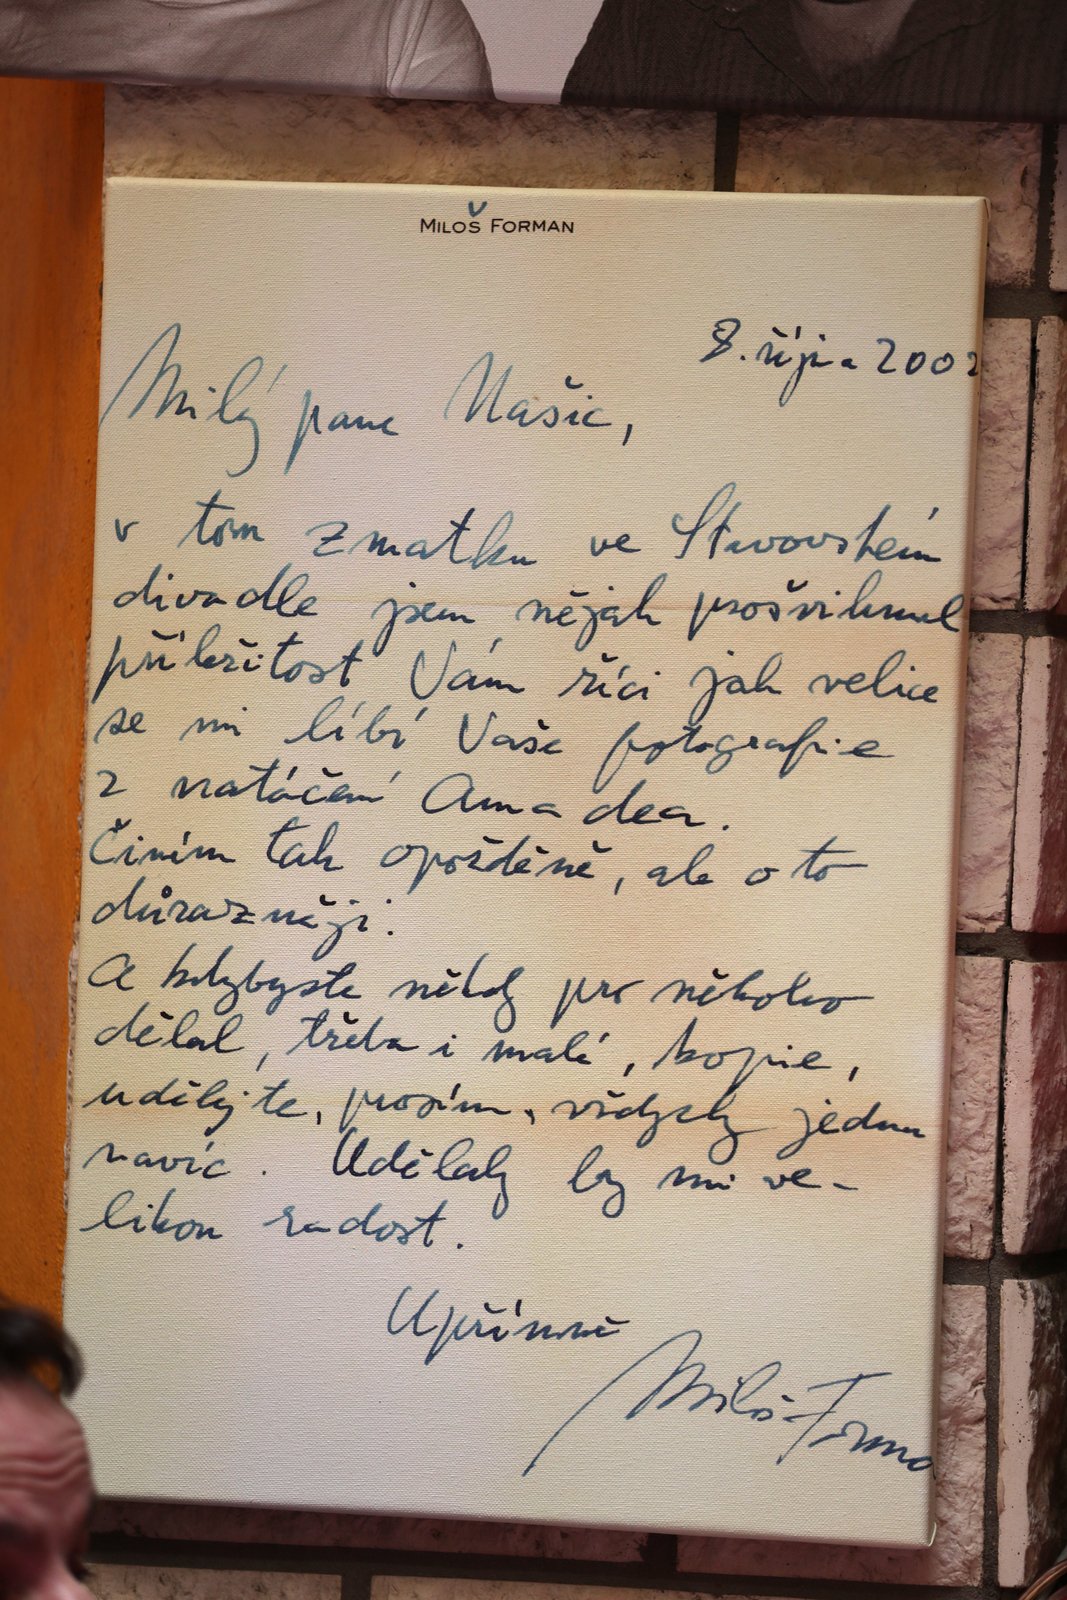 MILOŠ FORMAN
8. října 2002
Milý pane Našic,
v tom zmatku ve Stavovském
divadle jsem nějak prošvihnul
příležitost Vám říci jak velice
se mi líbí Vaše fotografie
z natáčení Amadea.
Činím tak opožděně, ale o to
důrazněji.
A kdybyste někdy pro někoho
dělal, třeba i malé, kopie,
udělejte, prosím, vždycky jednu
navíc. Udělaly by mi ve-
likou radost.
Upřímně
Miloš Forma